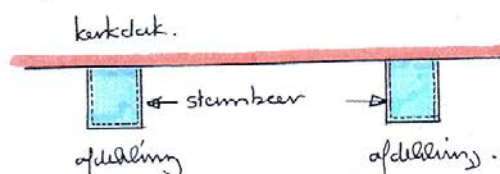 kerkdak.
steunbeer
afdekking
afdekking.